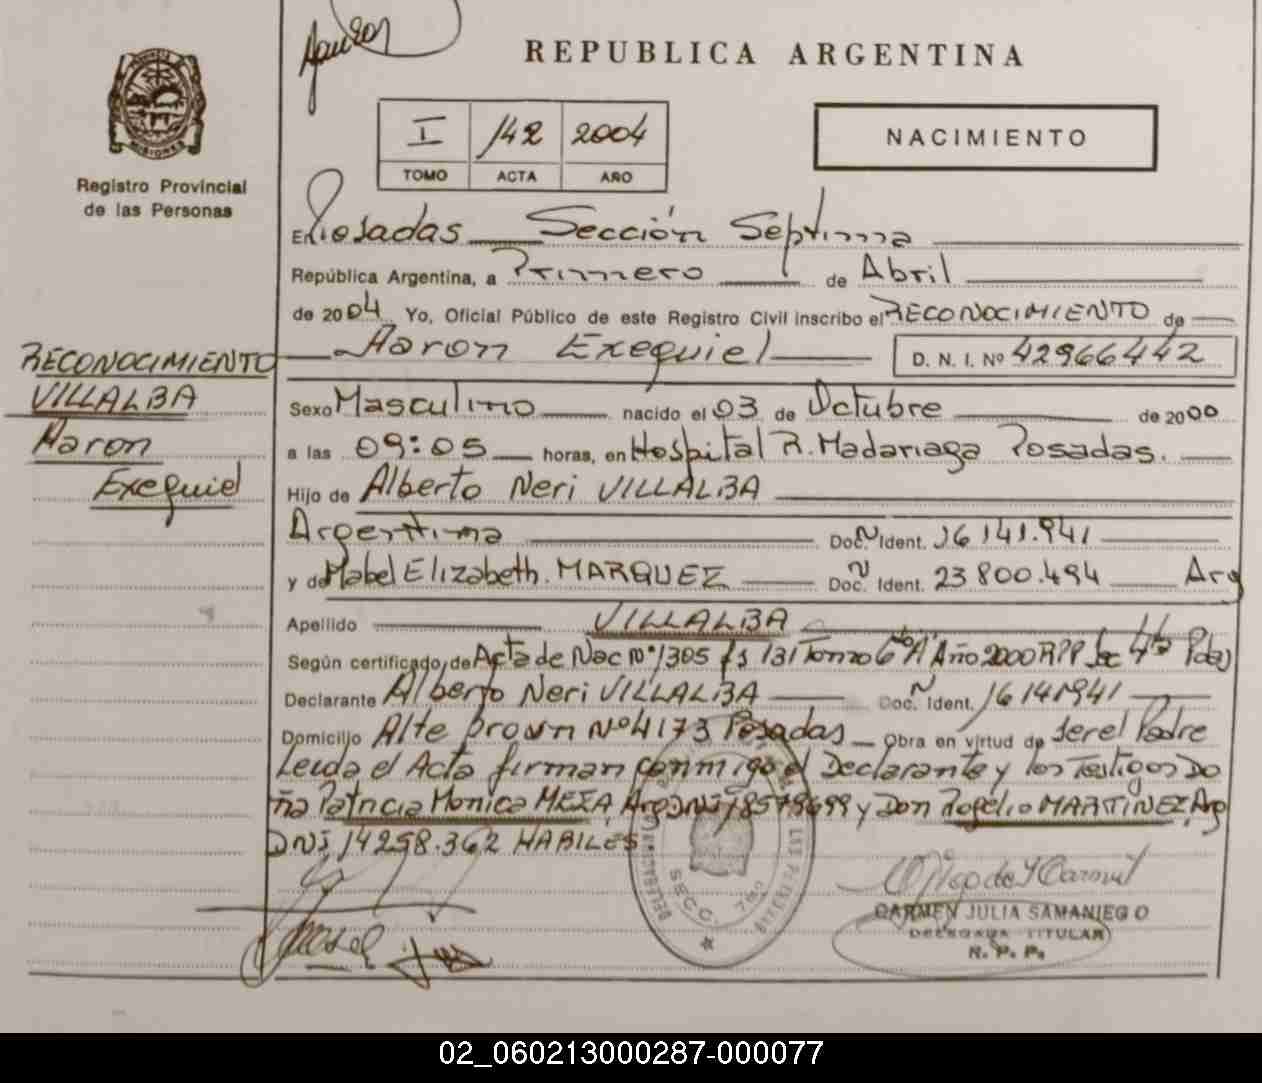 REPUBLICA ARGENTINA
PROVINCIA
MISIONES
Registro Provincial
de las Personas
I 142 2004
TOMO ACTA AÑO
NACIMIENTO
En Posadas Sección Septima
República Argentina, a Primero de Abril
de 2004 Yo, Oficial Público de este Registro Civil inscribo el RECONOCIMIENTO de
Aaron Exequiel D. N. I. Nº 42966442
RECONOCIMIENTO
VILLALBA
Aaron
Exequiel
Sexo Masculino nacido el 03 de Octubre de 2000
a las 09:05 horas, en Hospital R. Madariaga Posadas.
Hijo de Alberto Neri VILLALBA
Argentina Doc. Ident. 16 141.941
y de Mabel Elizabeth. MARQUEZ Doc. Ident. 23 800.494 Arg
Apellido VILLALBA
Según certificado de Acta de Nac Nº 1305 fs 131 Tomo 6º A Año 2000 RPP Sec 4ta Pdas
Declarante Alberto Neri VILLALBA Doc. Ident. 16141941
Domicilio Alte Brown Nº 4173 Posadas Obra en virtud de ser el Padre
Leida el Acta firman conmigo el Declarante y los Testigos Do
ña Patricia Monica MEZA, Arg DNI 18579699 y Don Rogelio MARTINEZ, Arg
DNI 14258.362 HABILES
SECC. 7
CARMEN JULIA SAMANIEGO
DELEGADA TITULAR
R. P. P.
02_060213000287-000077